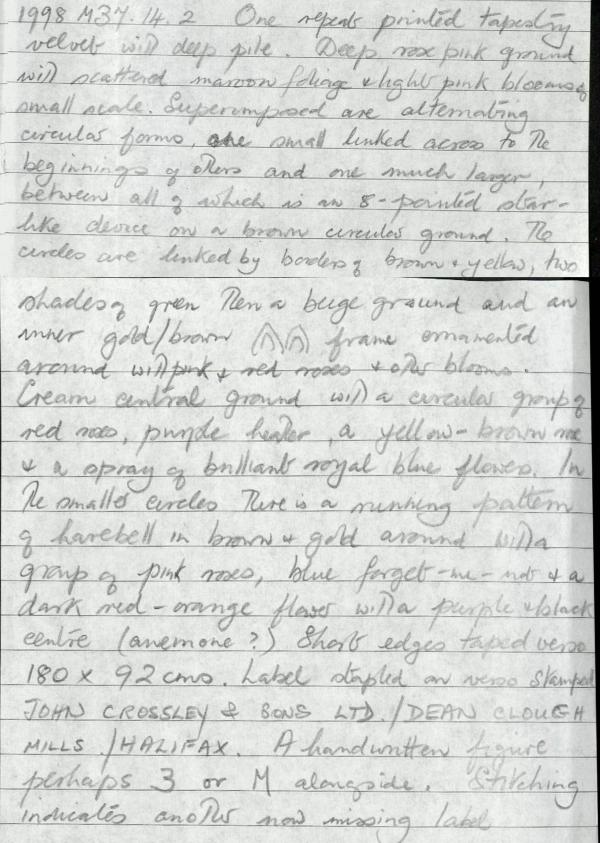 1998 M37.14.2 One repeat printed tapestry
velvet with deep pile. Deep rose pink ground
with scattered maroon foliage & light pink blooms of
small scale. Superimposed are alternating
circular forms, one small linked across to the
beginnings of others and one much larger,
between all of which is an 8-pointed star-
like device on a brown circular ground. The
circles are linked by borders of brown & yellow, two
shades of green then a beige ground and an
inner gold/brown frame ornamented
around with pink & red roses & other blooms.
Cream central ground with a circular group of
red roses, purple heather, a yellow-brown rose
& a spray of brilliant royal blue flowers. In
the smaller circles there is a running pattern
of harebell in brown & gold around with a
group of pink roses, blue forget-me-not & a
dark red-orange flower with a purple & black
centre (anemone?) Short edges taped verso
180 x 92 cms. Label stapled on verso stamped
JOHN CROSSLEY & SONS LTD./DEAN CLOUGH
MILLS./HALIFAX. A handwritten figure
perhaps 3 or M alongside. Stitching
indicates another now missing label